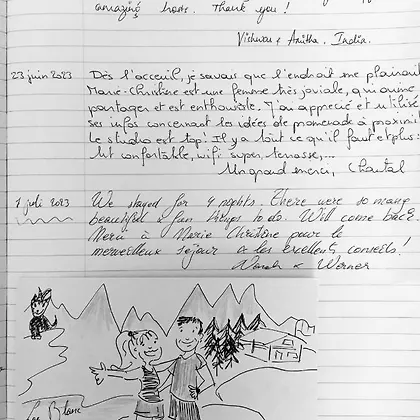 amazing hosts. Thank you!
Vishwas & Anitha. India.
23 juin 2023
Dès l'acceuil, je savais que l'endroit me plairait
Marie-Christine est une femme très joviale, qui aime
partager et est enthousiaste. J'ai apprécié et utilisé
ses infos concernant les idées de promenade à proximi
Le studio est top! Il y a tout ce qu'il faut et plus:
lit confortable, wifi super, terrasse,...
Un grand merci, Chantal
1 juli 2023
We stayed for 4 nights. There were so many
beautiful & fun things to do. Will come back.
Merci à Marie Christine pour le
merveilleux séjour & les excellents conseils!
& Werner
Blanc